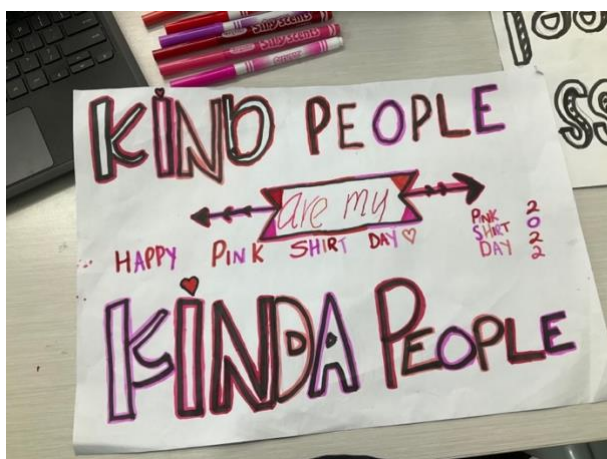 Silly Scents
Silly Scents
KIND PEOPLE
are my
HAPPY PINK SHIRT DAY♡
PINK SHIRT DAY
2022
KINDA PEOPLE